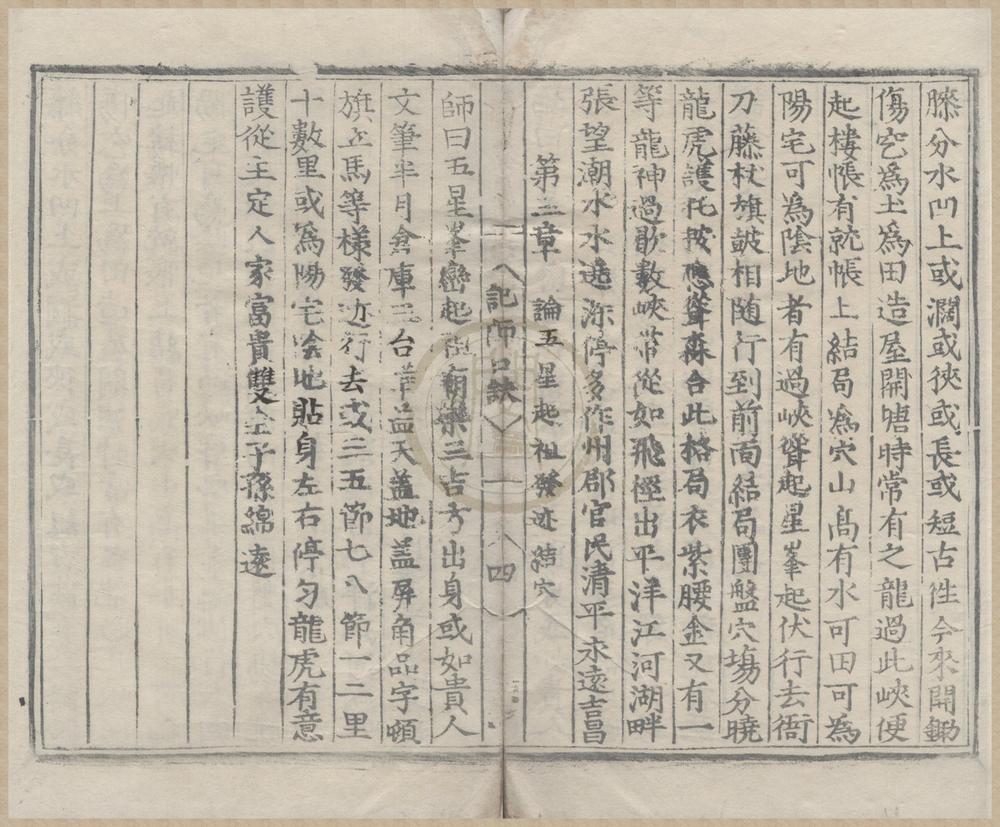 滕分水凹上或濶或狹或長或短古徃今來開鋤
傷穵為圡為田造屋開塘時常有之龍過此峽便
起樓帳有就帳上結局為穴山髙有水可田可為
陽宅可為陰地者有過峽聳起星峯起伏行去衙
刀藤杖旗皷相随行到前面結局團盤穴塲分曉
龍虎護托按應聳森合此格局衣紫腰金又有一
等龍神過歇數峽帯從如飛徑出平洋江河湖畔
張望潮水水遶深停多作州郡官民清平永遠吉昌
第三章 論五星起祖發迹結穴
記師口訣 四
師曰五星峯巒起祖廟樂三吉方出身或如貴人
文筆半月倉庫三台華盖天盖地盖屏角品字頓
旗立馬等樣發迹行去或三五節七八節一二里
十數里或為陽宅陰地貼身左右停匀龍虎有意
護從主定人家富貴雙全子孫綿遠